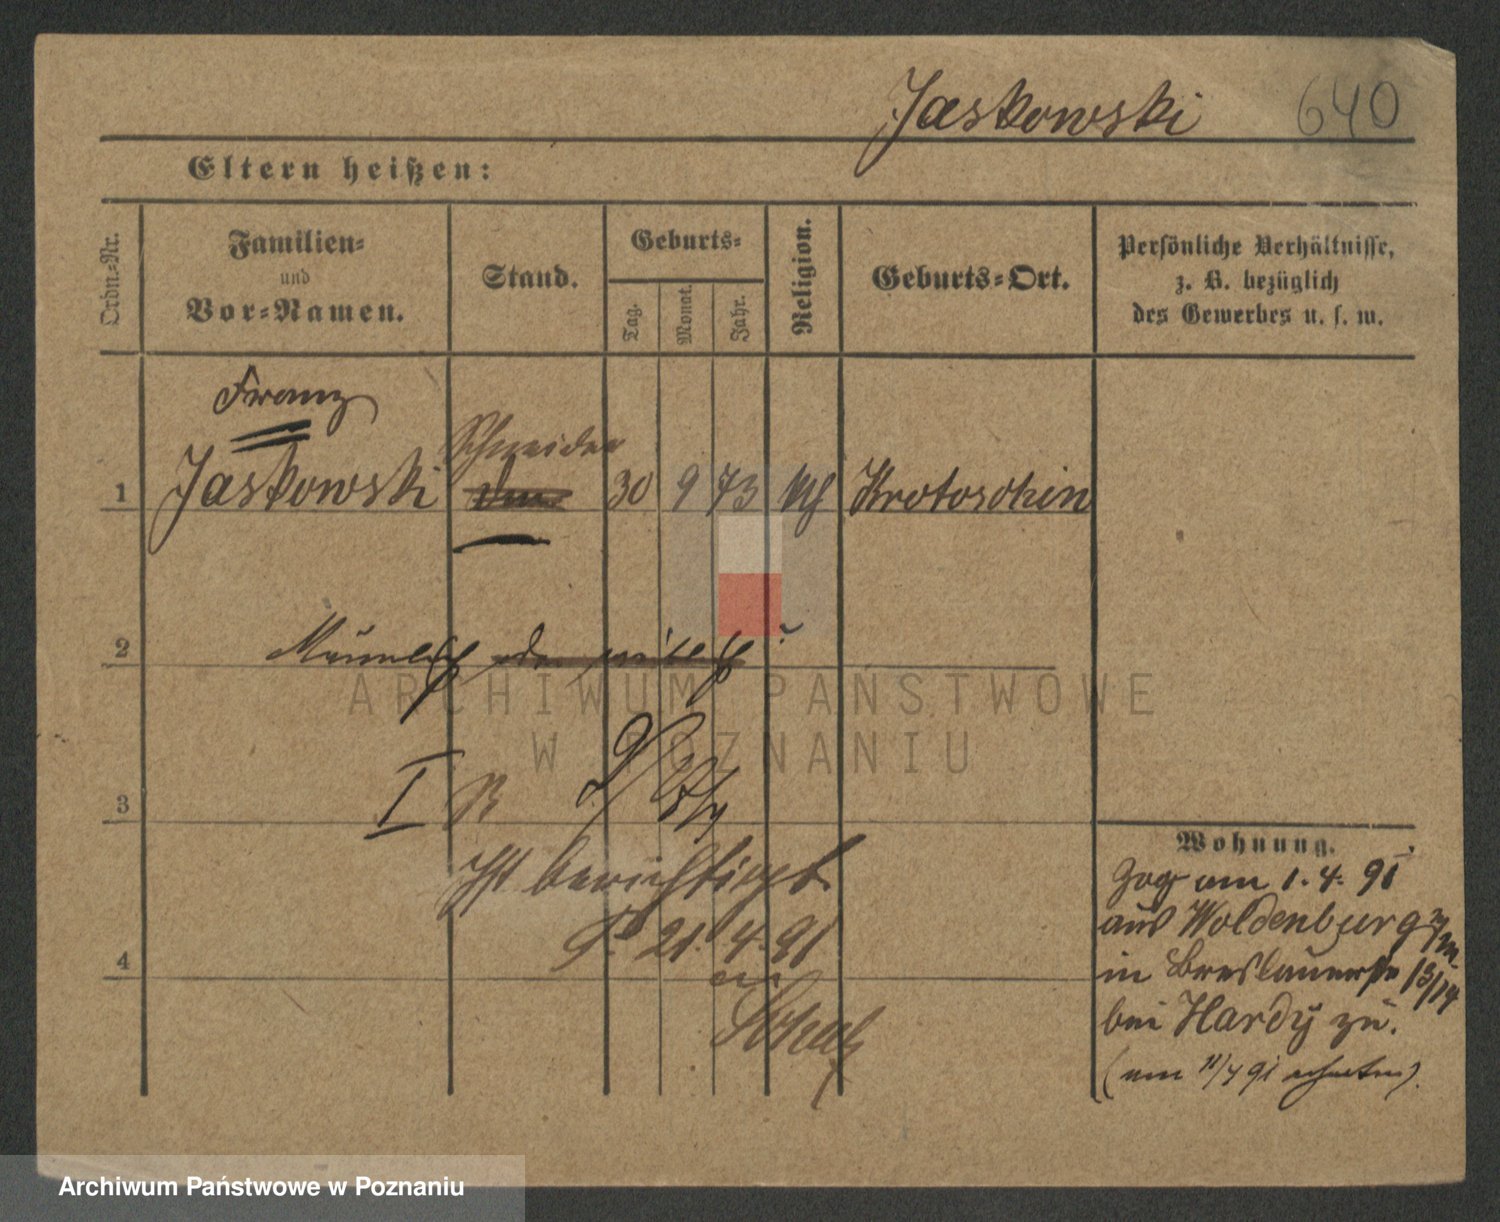 Jaskowski 640
Eltern heißen:
Ordn=Nr.
Familien=
und
Vor=Namen.
Stand.
Geburts=
Tag.
Monat.
Jahr.
Religion.
Geburts=Ort.
Persönliche Verhältnisse,
z. B. bezüglich
des Gewerbes u. s. w.
Franz
Schneider
1 Jaskowski 30 9 73 Krotoschin
2 Männlich oder weiblich?
ARCHIWUM PAŃSTWOWE
W POZNANIU
3 I B
Ist berichtigt
4 P. 21. 4. 91
Wohnung.
Zog am 1. 4. 91
aus Woldenburg
in Breslauerstr 13/14
bei Hardy zu.
(am 11/4 91)
Archiwum Państwowe w Poznaniu